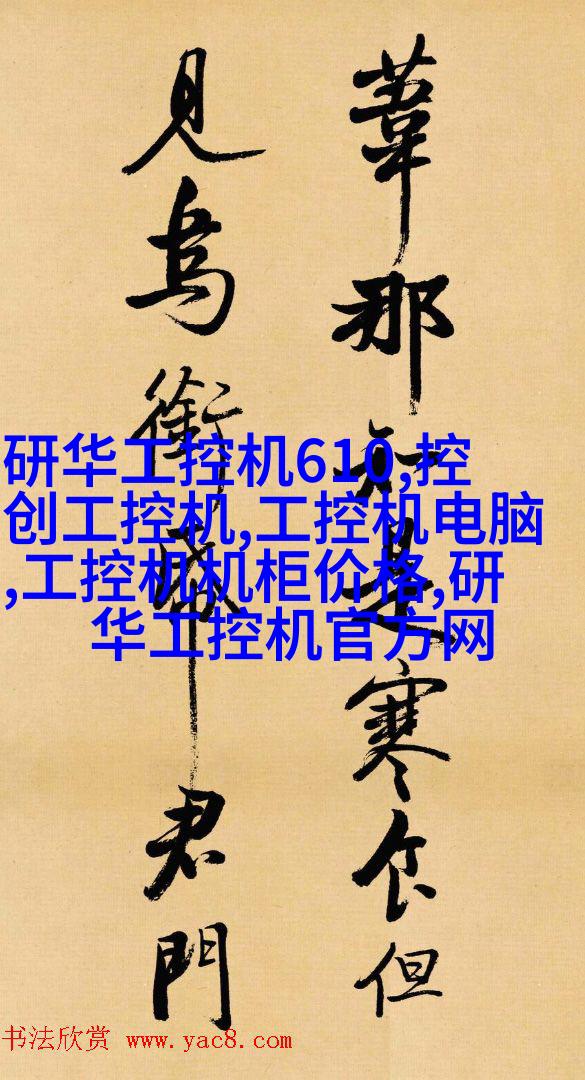 葦那知是寒食但
見烏銜帋君門
研华工控机610,控
创工控机,工控机电脑
,工控机机柜价格,研
华工控机官方网
书法欣赏 www.yac8.com